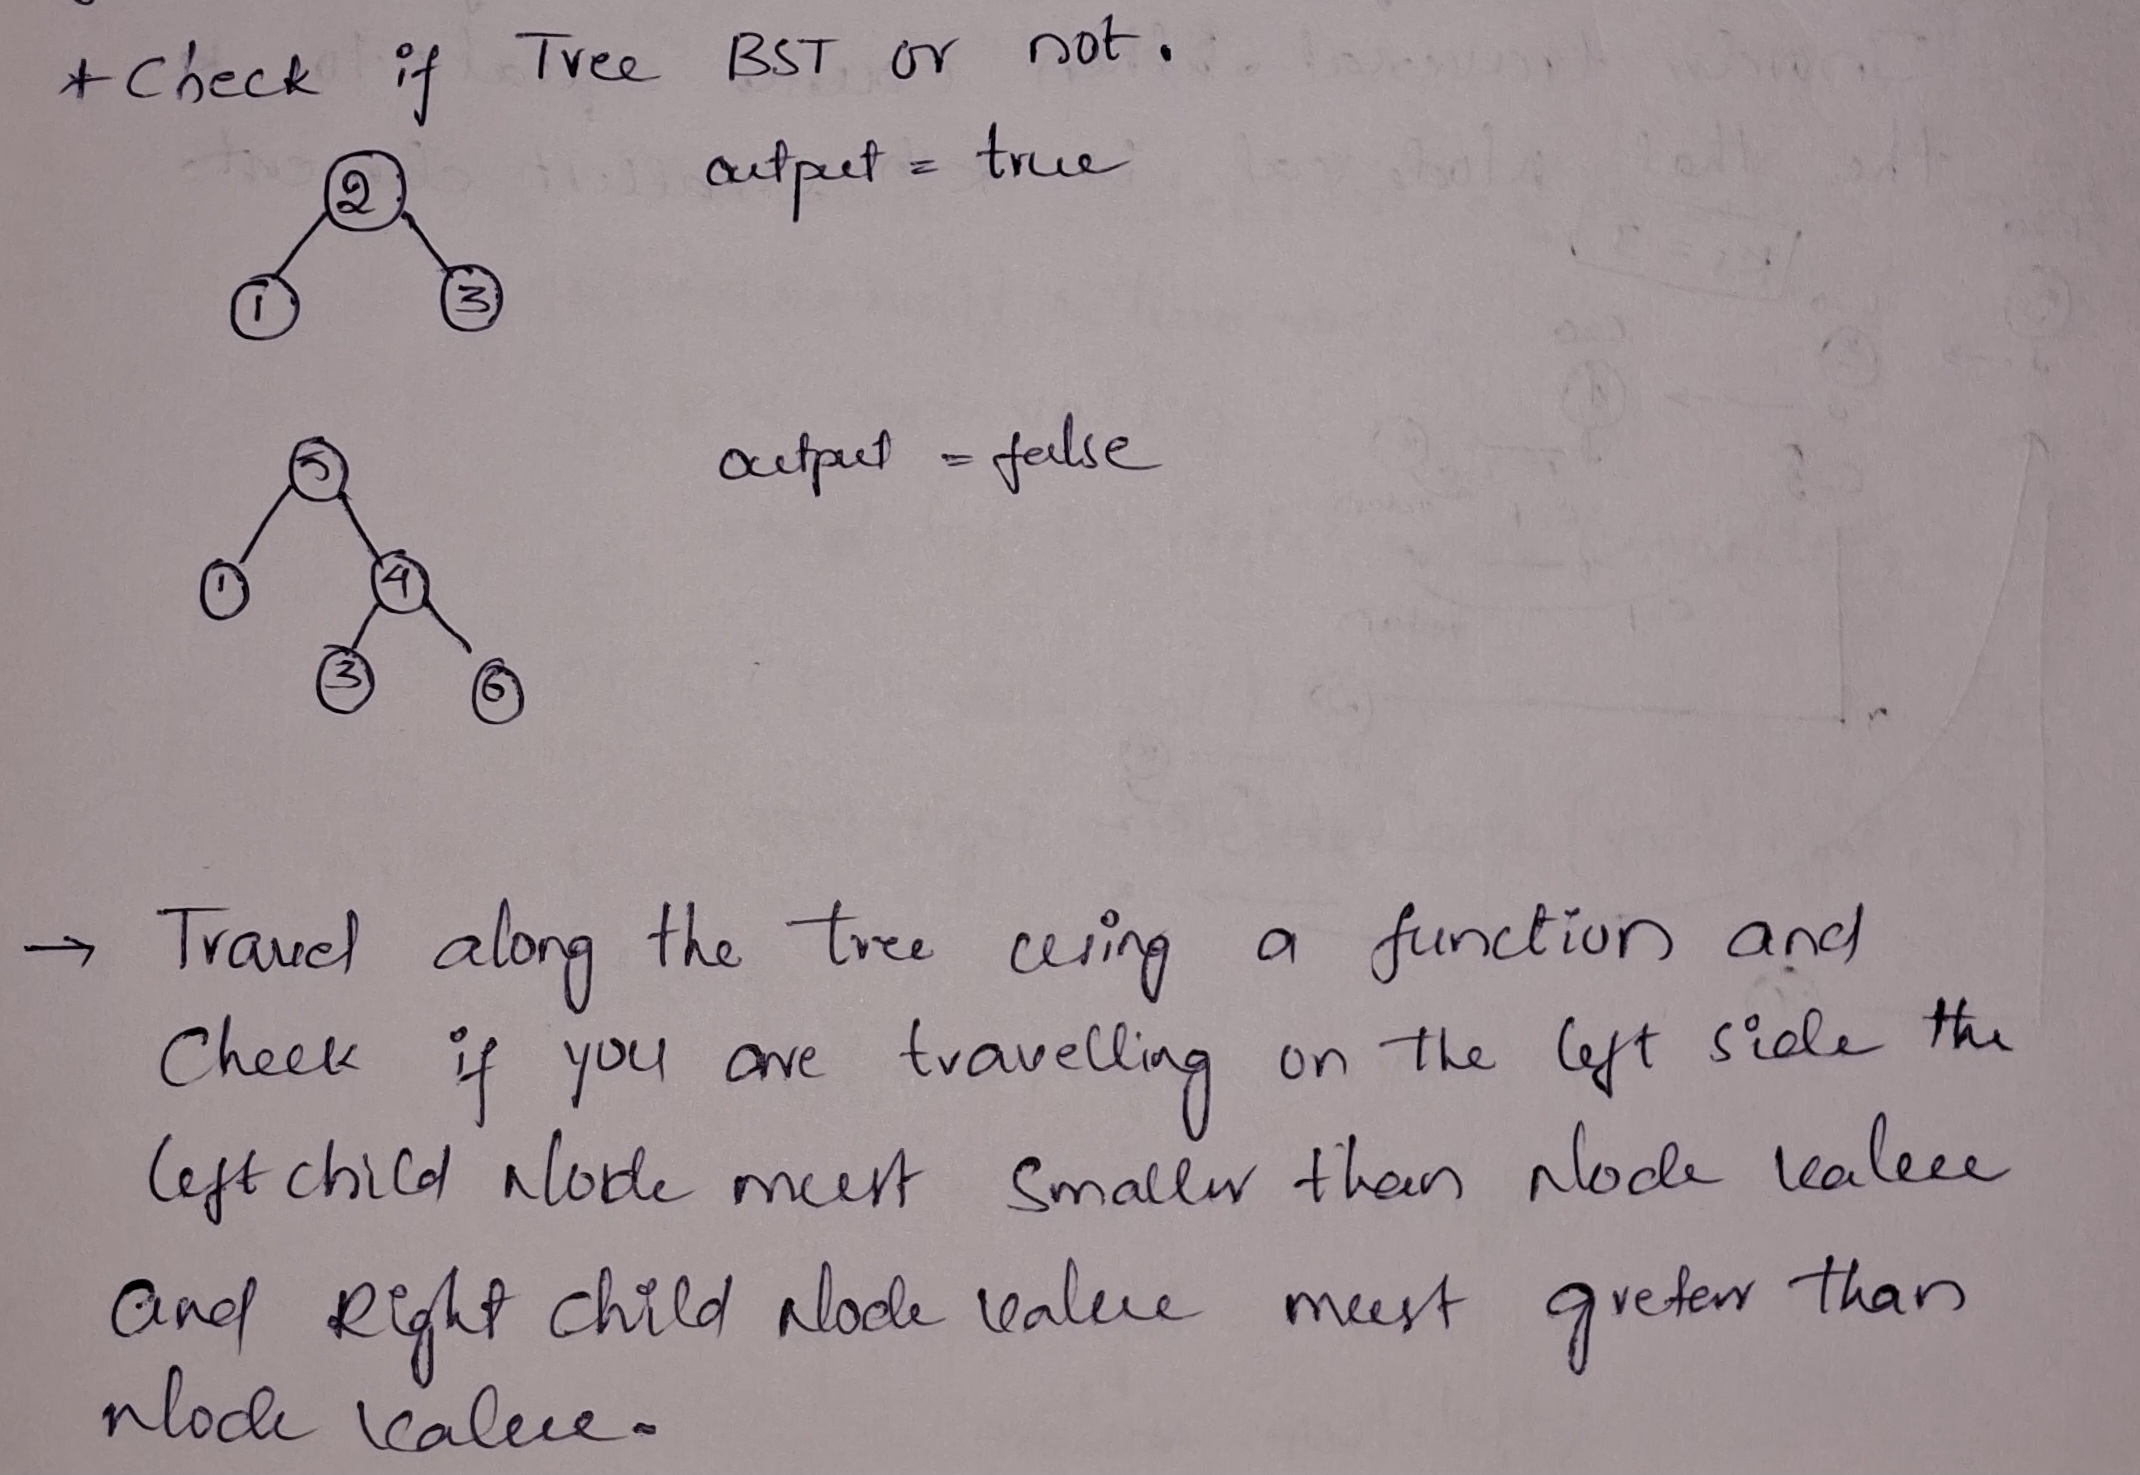 * Check if Tree BST or not.
output = true
2
1 3
output = false
5
1 4
3 6
→ Travel along the tree using a function and
Check if you are travelling on the left side the
left child Node must smaller than Node value
and Right child Node value must greter than
Node value.